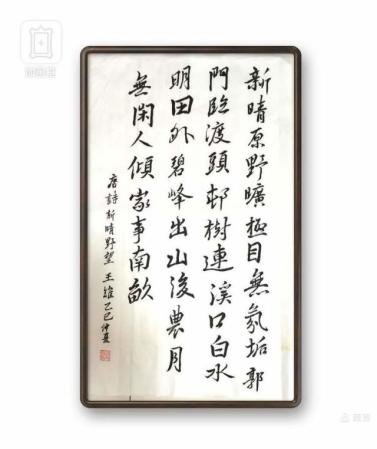 新晴原野曠極目無氛垢郭
門臨渡頭邨樹連溪口白水
明田外碧峰出山後農月
無閑人傾家事南畝
唐詩新晴野望 王維乙巳仲夏